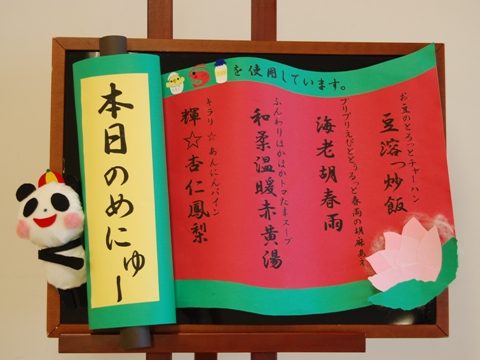 本日のめにゅー
を使用しています。
お豆のとろっとチャーハン
豆溶っ炒飯
プリプリえびととぅるっと春雨の胡麻あえ
海老胡春雨
ふんわりほかほかトマたまスープ
和柔温暖赤黄湯
キラリ☆あんにんパイン
輝☆杏仁鳳梨